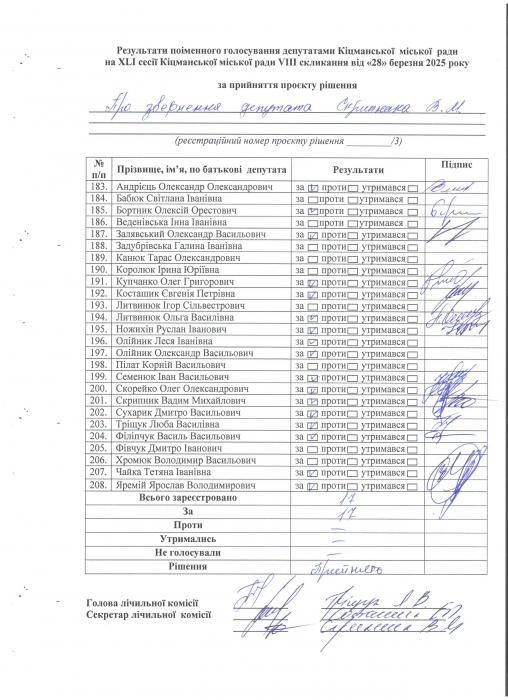 Результати поіменного голосування депутатами Кіцманської міської ради
на XLI сесії Кіцманської міської ради VIII скликання від «28» березня 2025 року
за прийняття проєкту рішення
Про звернення депутата Скрипника В.М.
(реєстраційний номер проєкту рішення ________/3)
№ п/п Прізвище, ім’я, по батькові депутата Результати Підпис
183. Андрієць Олександр Олександрович за V проти утримався
184. Бабюк Світлана Іванівна за проти утримався
185. Бортник Олексій Орестович за V проти утримався
186. Веденівська Інна Іванівна за проти утримався
187. Залявський Олександр Васильович за V проти утримався
188. Задубрівська Галина Іванівна за проти утримався
189. Канюк Тарас Олександрович за проти утримався
190. Королюк Ірина Юріївна за проти утримався
191. Купчанко Олег Григорович за V проти утримався
192. Косташик Євгенія Петрівна за V проти утримався
193. Литвинюк Ігор Сільвестрович за проти утримався
194. Литвинюк Ольга Василівна за V проти утримався
195. Ножихін Руслан Іванович за V проти утримався
196. Олійник Леся Іванівна за V проти утримався
197. Олійник Олександр Васильович за V проти утримався
198. Пілат Корній Васильович за проти утримався
199. Семенюк Іван Васильович за V проти утримався
200. Скорейко Олег Олександрович за V проти утримався
201. Скрипник Вадим Михайлович за V проти утримався
202. Сухарик Дмитро Васильович за V проти утримався
203. Тріщук Люба Василівна за V проти утримався
204. Філіпчук Василь Васильович за V проти утримався
205. Фівчук Дмитро Іванович за проти утримався
206. Хромюк Володимир Васильович за проти утримався
207. Чайка Тетяна Іванівна за V проти утримався
208. Яремій Ярослав Володимирович за V проти утримався
Всього зареєстровано 17
За 17
Проти —
Утримались —
Не голосували —
Рішення Прийнято
Голова лічильної комісії
Секретар лічильної комісії